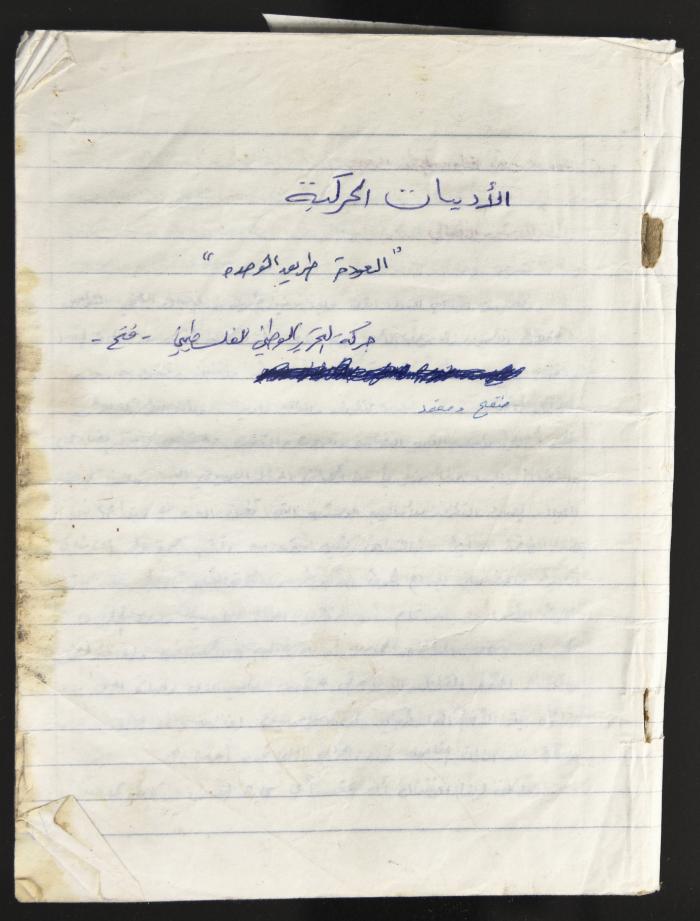 الأدبيات الحركية
"العودة طريق الوحده"
حركة التحرير الوطني الفلسطيني - فتح -
منقح و